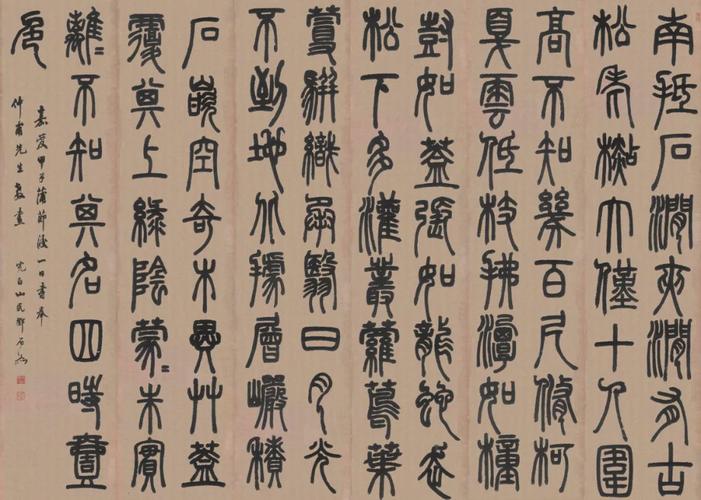 南抵石澗夾澗有古
松老檆大僅十人圍
高不知幾百尺脩柯
戛雲低枝拂潭如橦
尌如蓋張如龍蛇走
松下多灌叢蘿蔦葉
蔓駢織承翳日月光
不到地北據層巖積
石嵌空奇木異艸蓋
覆其上綠陰蒙〻朱實
離〻不知其名四時壹
色
嘉慶甲子蒲節後一日書奉
仲甫先生教 完白山民鄧石如